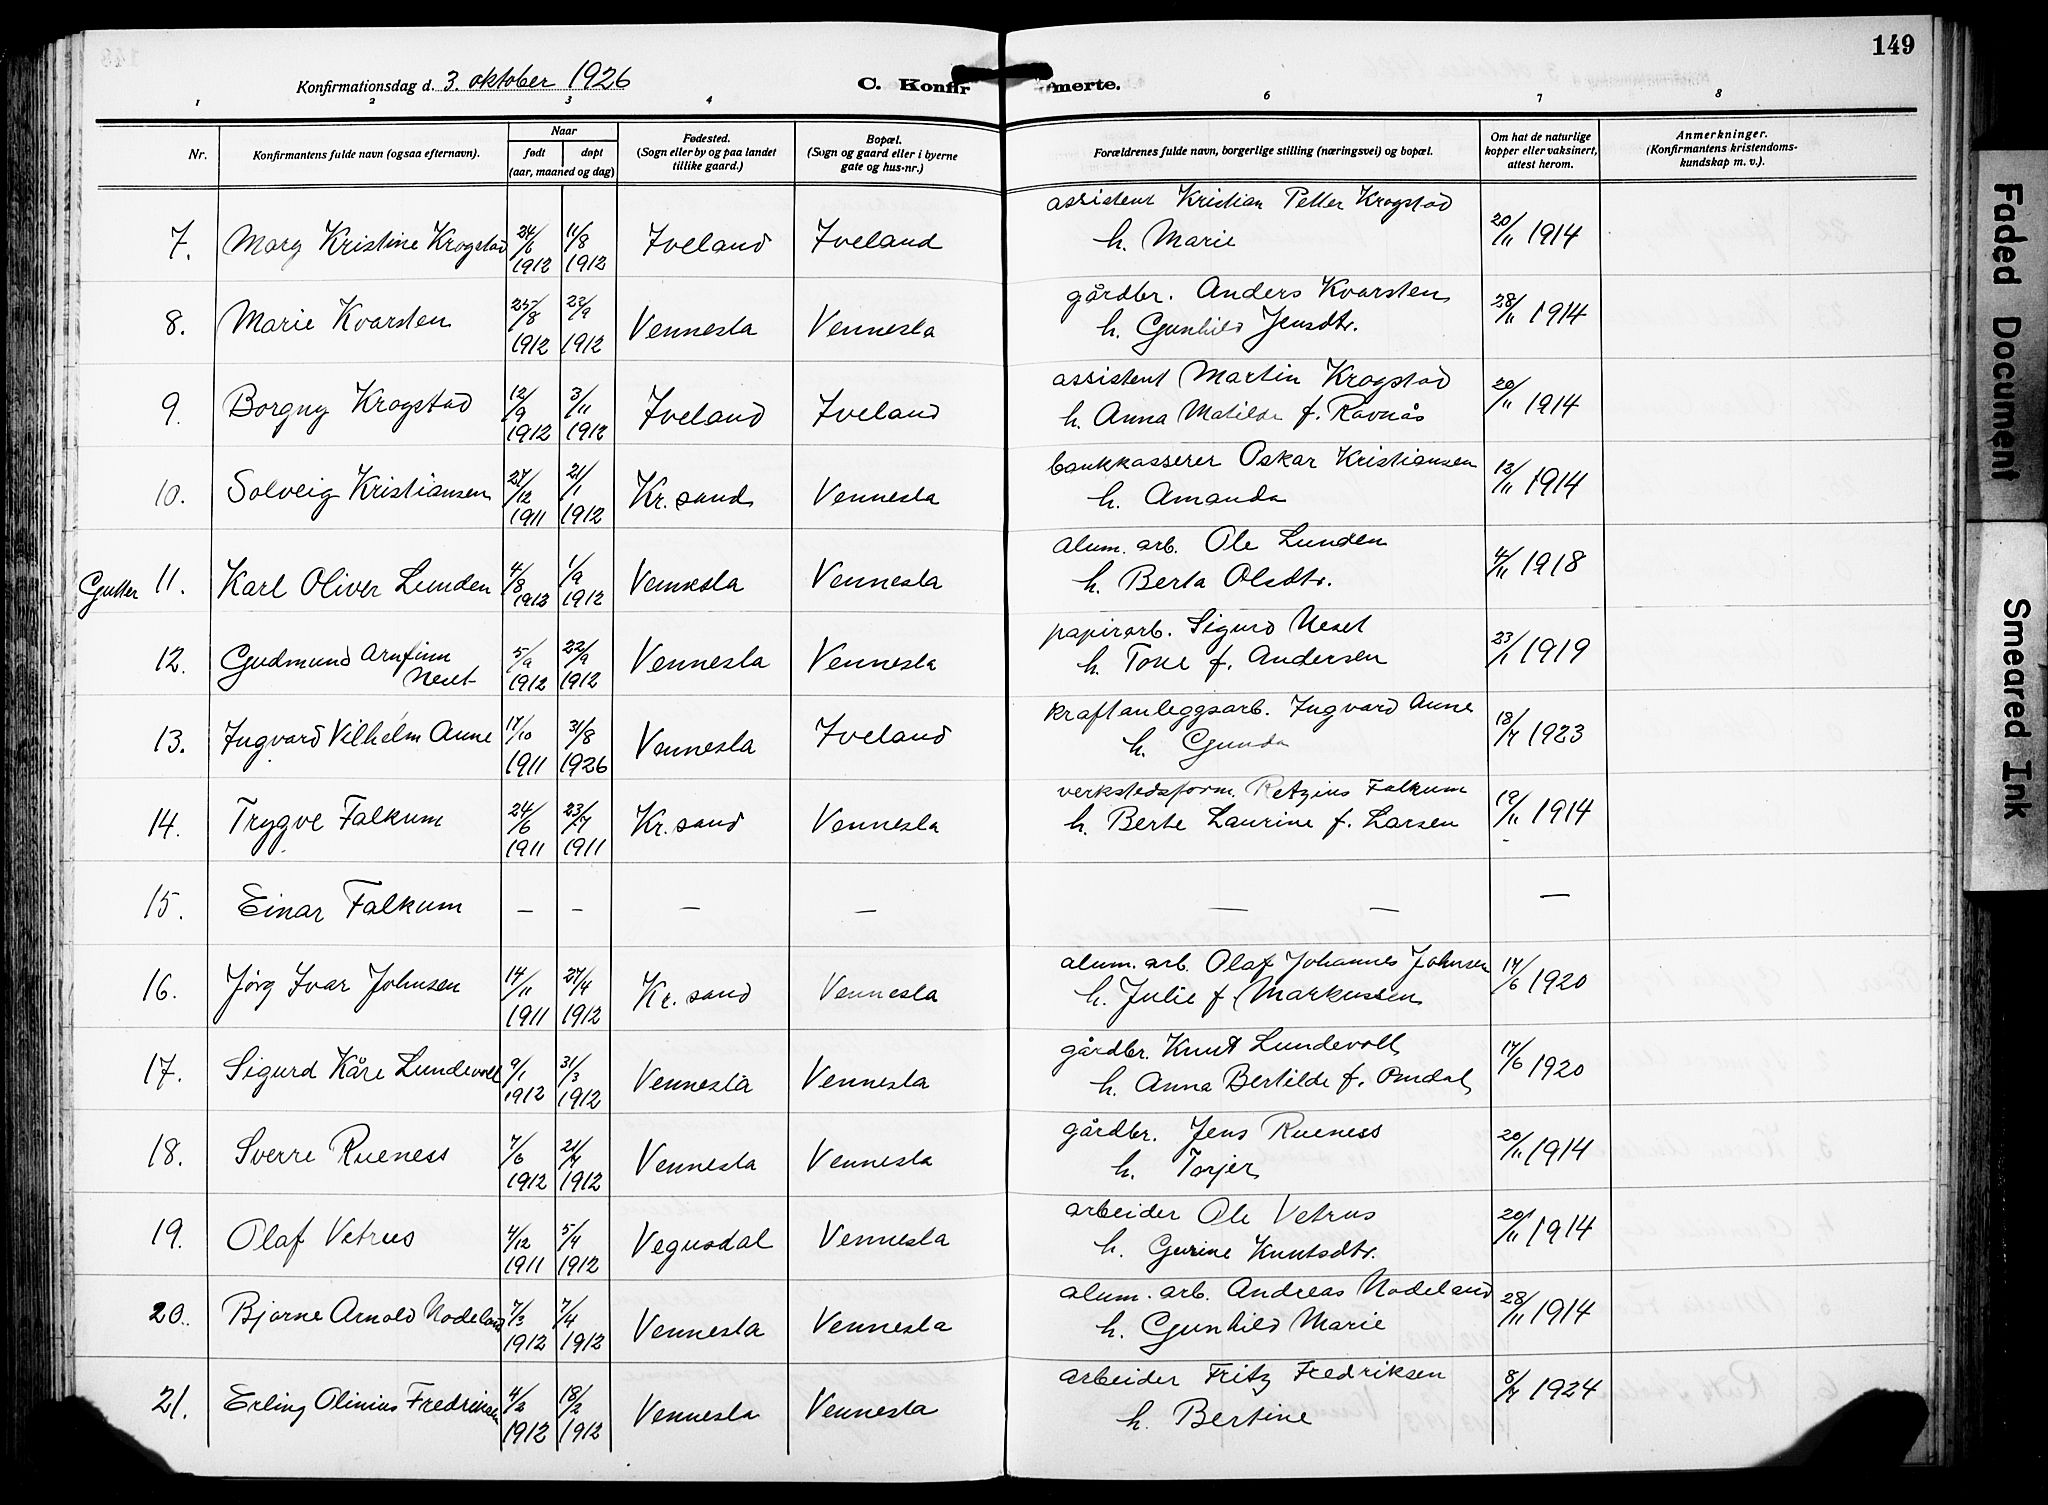 149
Konfirmationsdag d. 3. oktober 1926
C. Konfirmerte.
1 2 3 4 6 7 8
Nr.
Konfirmantens fulde navn (ogsaa efternavn).
Naar
født døpt
(aar, maaned og dag)
Fødested.
(Sogn eller by og paa landet
tillike gaard.)
Bopæl.
(Sogn og gaard eller i byerne
gate og hus-nr.)
Forældrenes fulde navn, borgerlige stilling (næringsvei) og bopæl.
Om hat de naturlige
kopper eller vaksinert,
attest herom.
Anmerkninger.
(Konfirmantens kristendoms-
kundskap m. v.).
7. Mary Kristine Krogstad 24/6 1912 11/8 1912 Iveland Iveland assistent Kristian Petter Krogstad
h. Marie 20/11 1914
8. Marie Kvarsten 25/8 1912 22/9 1912 Vennesla Vennesla gårdbr. Anders Kvarsten
h. Gunhild Jensdtr. 28/11 1914
9. Borgny Krogstad 12/9 1912 3/11 1912 Iveland Iveland assistent Martin Krogstad
h. Anna Matilde f. Ravnås 20/11 1914
10. Solveig Kristiansen 27/12 1911 21/1 1912 Kr. sand Vennesla bankkasserer Oskar Kristiansen
h. Amanda 12/11 1914
Gutter 11. Karl Oliver Lunden 4/8 1912 1/9 1912 Vennesla Vennesla alum. arb. Ole Lunden
h. Berta Olsdtr. 4/11 1918
12. Gudmund Arnfinn
Neset 5/9 1912 22/9 1912 Vennesla Vennesla papirarb. Sigurd Neset
h. Tone f. Andersen 23/1 1919
13. Ingvard Vilhelm Aune 17/10 1911 31/8 1926 Vennesla Iveland kraftanleggsarb. Ingvard Aune
h. Gunda 18/7 1923
14. Trygve Falkum 24/6 1911 23/7 1911 Kr. sand Vennesla verkstedsform. Retzius Falkum
h. Berte Laurine f. Larsen 19/11 1914
15. Einar Falkum — — — — — — —
16. Jørg Ivar Johnsen 14/11 1911 27/4 1912 Kr. sand Vennesla alum. arb. Olaf Johannes Johnsen
h. Julie f. Markussen 17/6 1920
17. Sigurd Kåre Lundevoll 9/1 1912 31/3 1912 Vennesla Vennesla gårdbr. Knut Lundevoll
h. Anna Bertilde f. Omdal 17/6 1920
18. Sverre Rueness 7/6 1912 21/7 1912 Vennesla Vennesla gårdbr. Jens Rueness
h. Torjer 20/11 1914
19. Olaf Vetrus 4/12 1911 5/4 1912 Vegusdal Vennesla arbeider Ole Vetrus
h. Gurine Knutsdtr. 20/11 1914
20. Bjarne Arnold Nodeland 7/3 1912 7/4 1912 Vennesla Vennesla alum. arb. Andreas Nodeland
h. Gunhild Marie 28/11 1914
21. Erling Olinius Fredriksen 4/2 1912 18/2 1912 Vennesla Vennesla arbeider Fritz Fredriksen
h. Bertine 8/7 1924
Faded Document
Smeared Ink